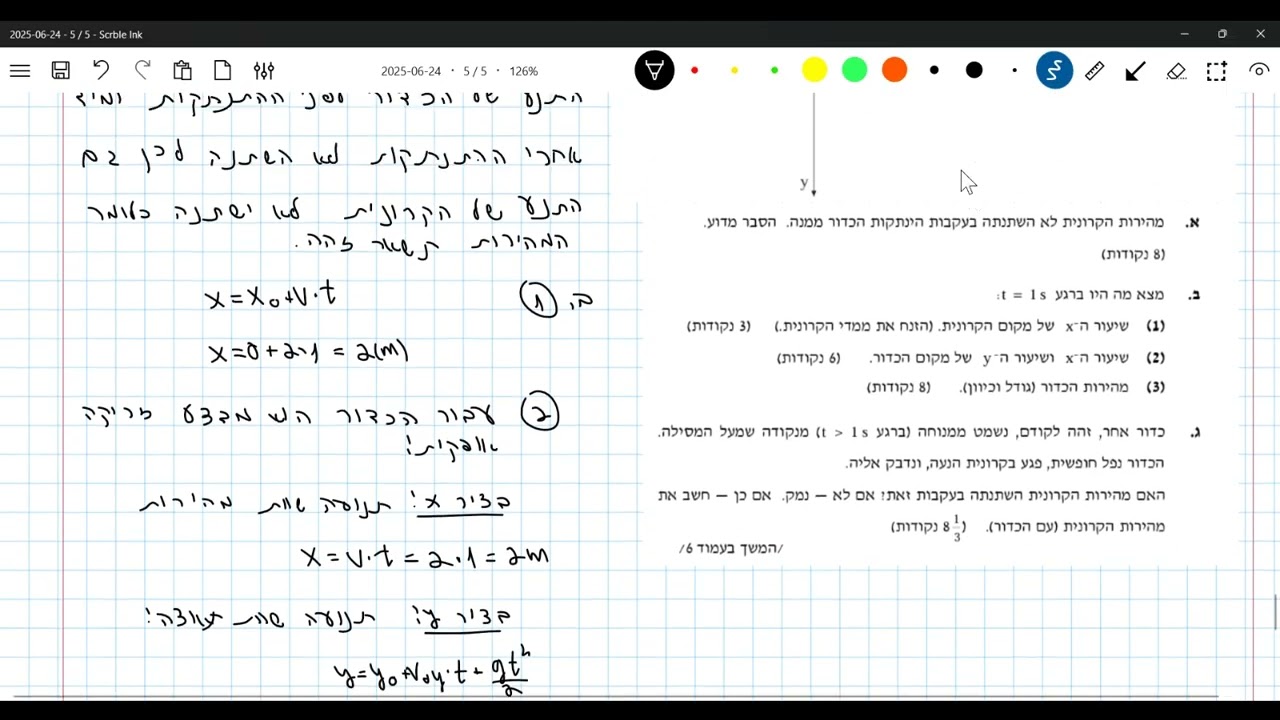 2025-06-24 - 5 / 5 - Scrble Ink
2025-06-24 · 5 / 5 · 126%
התנע של הכדור לפני ההתנתקות ומיד
אחרי ההתנתקות לא השתנה לכן גם
התנע של הקרונית לא ישתנה כלומר
המהירות תשאר זהה.
ב. 1 x=x₀+v·t
x=0+2·1=2(m)
2 עבור הכדור הוא מבצע זריקה
אופקית!
בציר x: תנועה שוות מהירות
x=v·t=2·1=2m
בציר y: תנועה שוות תאוצה:
y=y₀+v₀y·t+gt²/2
y
א. מהירות הקרונית לא השתנתה בעקבות הינתקות הכדור ממנה. הסבר מדוע.
(8 נקודות)
ב. מצא מה היו ברגע t = 1 s:
(1) שיעור ה־x של מקום הקרונית. (הזנח את ממדי הקרונית.) (3 נקודות)
(2) שיעור ה־x ושיעור ה־y של מקום הכדור. (6 נקודות)
(3) מהירות הכדור (גודל וכיוון). (8 נקודות)
ג. כדור אחר, זהה לקודם, נשמט ממנוחה (ברגע t > 1 s) מנקודה שמעל המסילה.
הכדור נפל חופשית, פגע בקרונית הנעה, ונדבק אליה.
האם מהירות הקרונית השתנתה בעקבות זאת? אם לא – נמק. אם כן – חשב את
מהירות הקרונית (עם הכדור). (8 1/3 נקודות)
/המשך בעמוד 6/